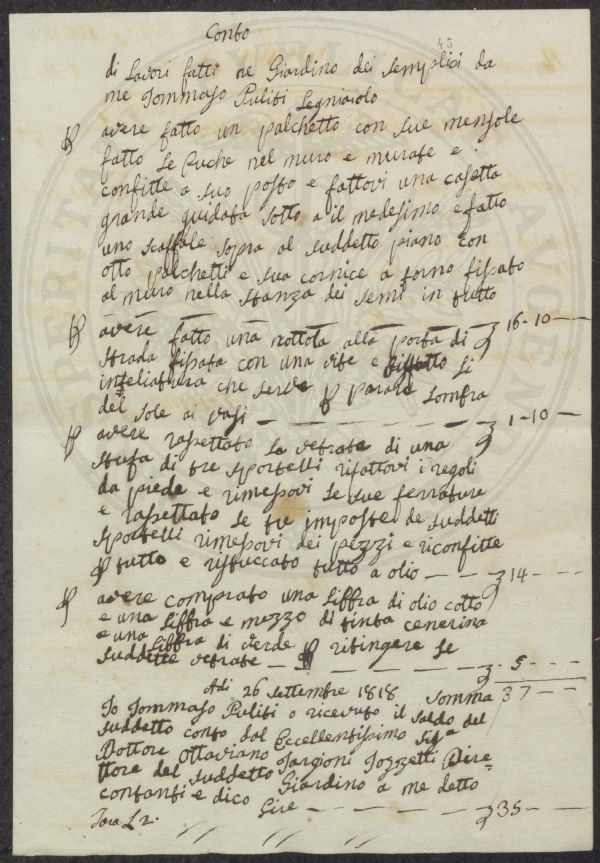 45
Conto
di Lavori fatti ne Giardino dei Semplici da
me Tommaso Puliti Legniaiolo
avere fatto un palchetto con sue mensole
fatto le Buche nel muro e murate e
confitte a suo posto e fattovi una casetta
grande guidata sotto a il medesimo e fatto
uno scaffale sopra al suddetto piano con
otto palchetti e sua cornice a torno fissato
al muro nella stanza dei semi in tutto
— — — — — — 16-10 —
avere fatto una nottola alla porta di
strada fissata con una vite e si
inteliatura che serve parare l'ombra
del sole ai vasi — — — — — 1-10 —
avere rassettato la vetrate di una
stufa di tre sportelli rifattovi i regoli
da piede e rimessovi le sue ferrature
e rassettato le tre imposte de suddetti
sportelli rimessovi dei pezzi e riconfitte
tutto e ristuccato tutto a olio — — — 14 - - -
avere comprato una libbra di olio cotto
e una libbra e mezzo di tinta cenerina
e una libbra di verde ritingere le
suddette vetrate — — — — 5 - - -
Somma 37 — —
Adi 26 settembre 1818
Io Tommaso Puliti o ricevuto il saldo del
suddetto conto dal Eccellentissimo Sig.re
Dottore Ottaviano Targioni Tozzetti Dire=
ttore del suddetto Giardino a me detto
contanti e dico Lire — — — — 35 - —
Tara L 2.
SPERITATE PUBLICA
AVGENDO